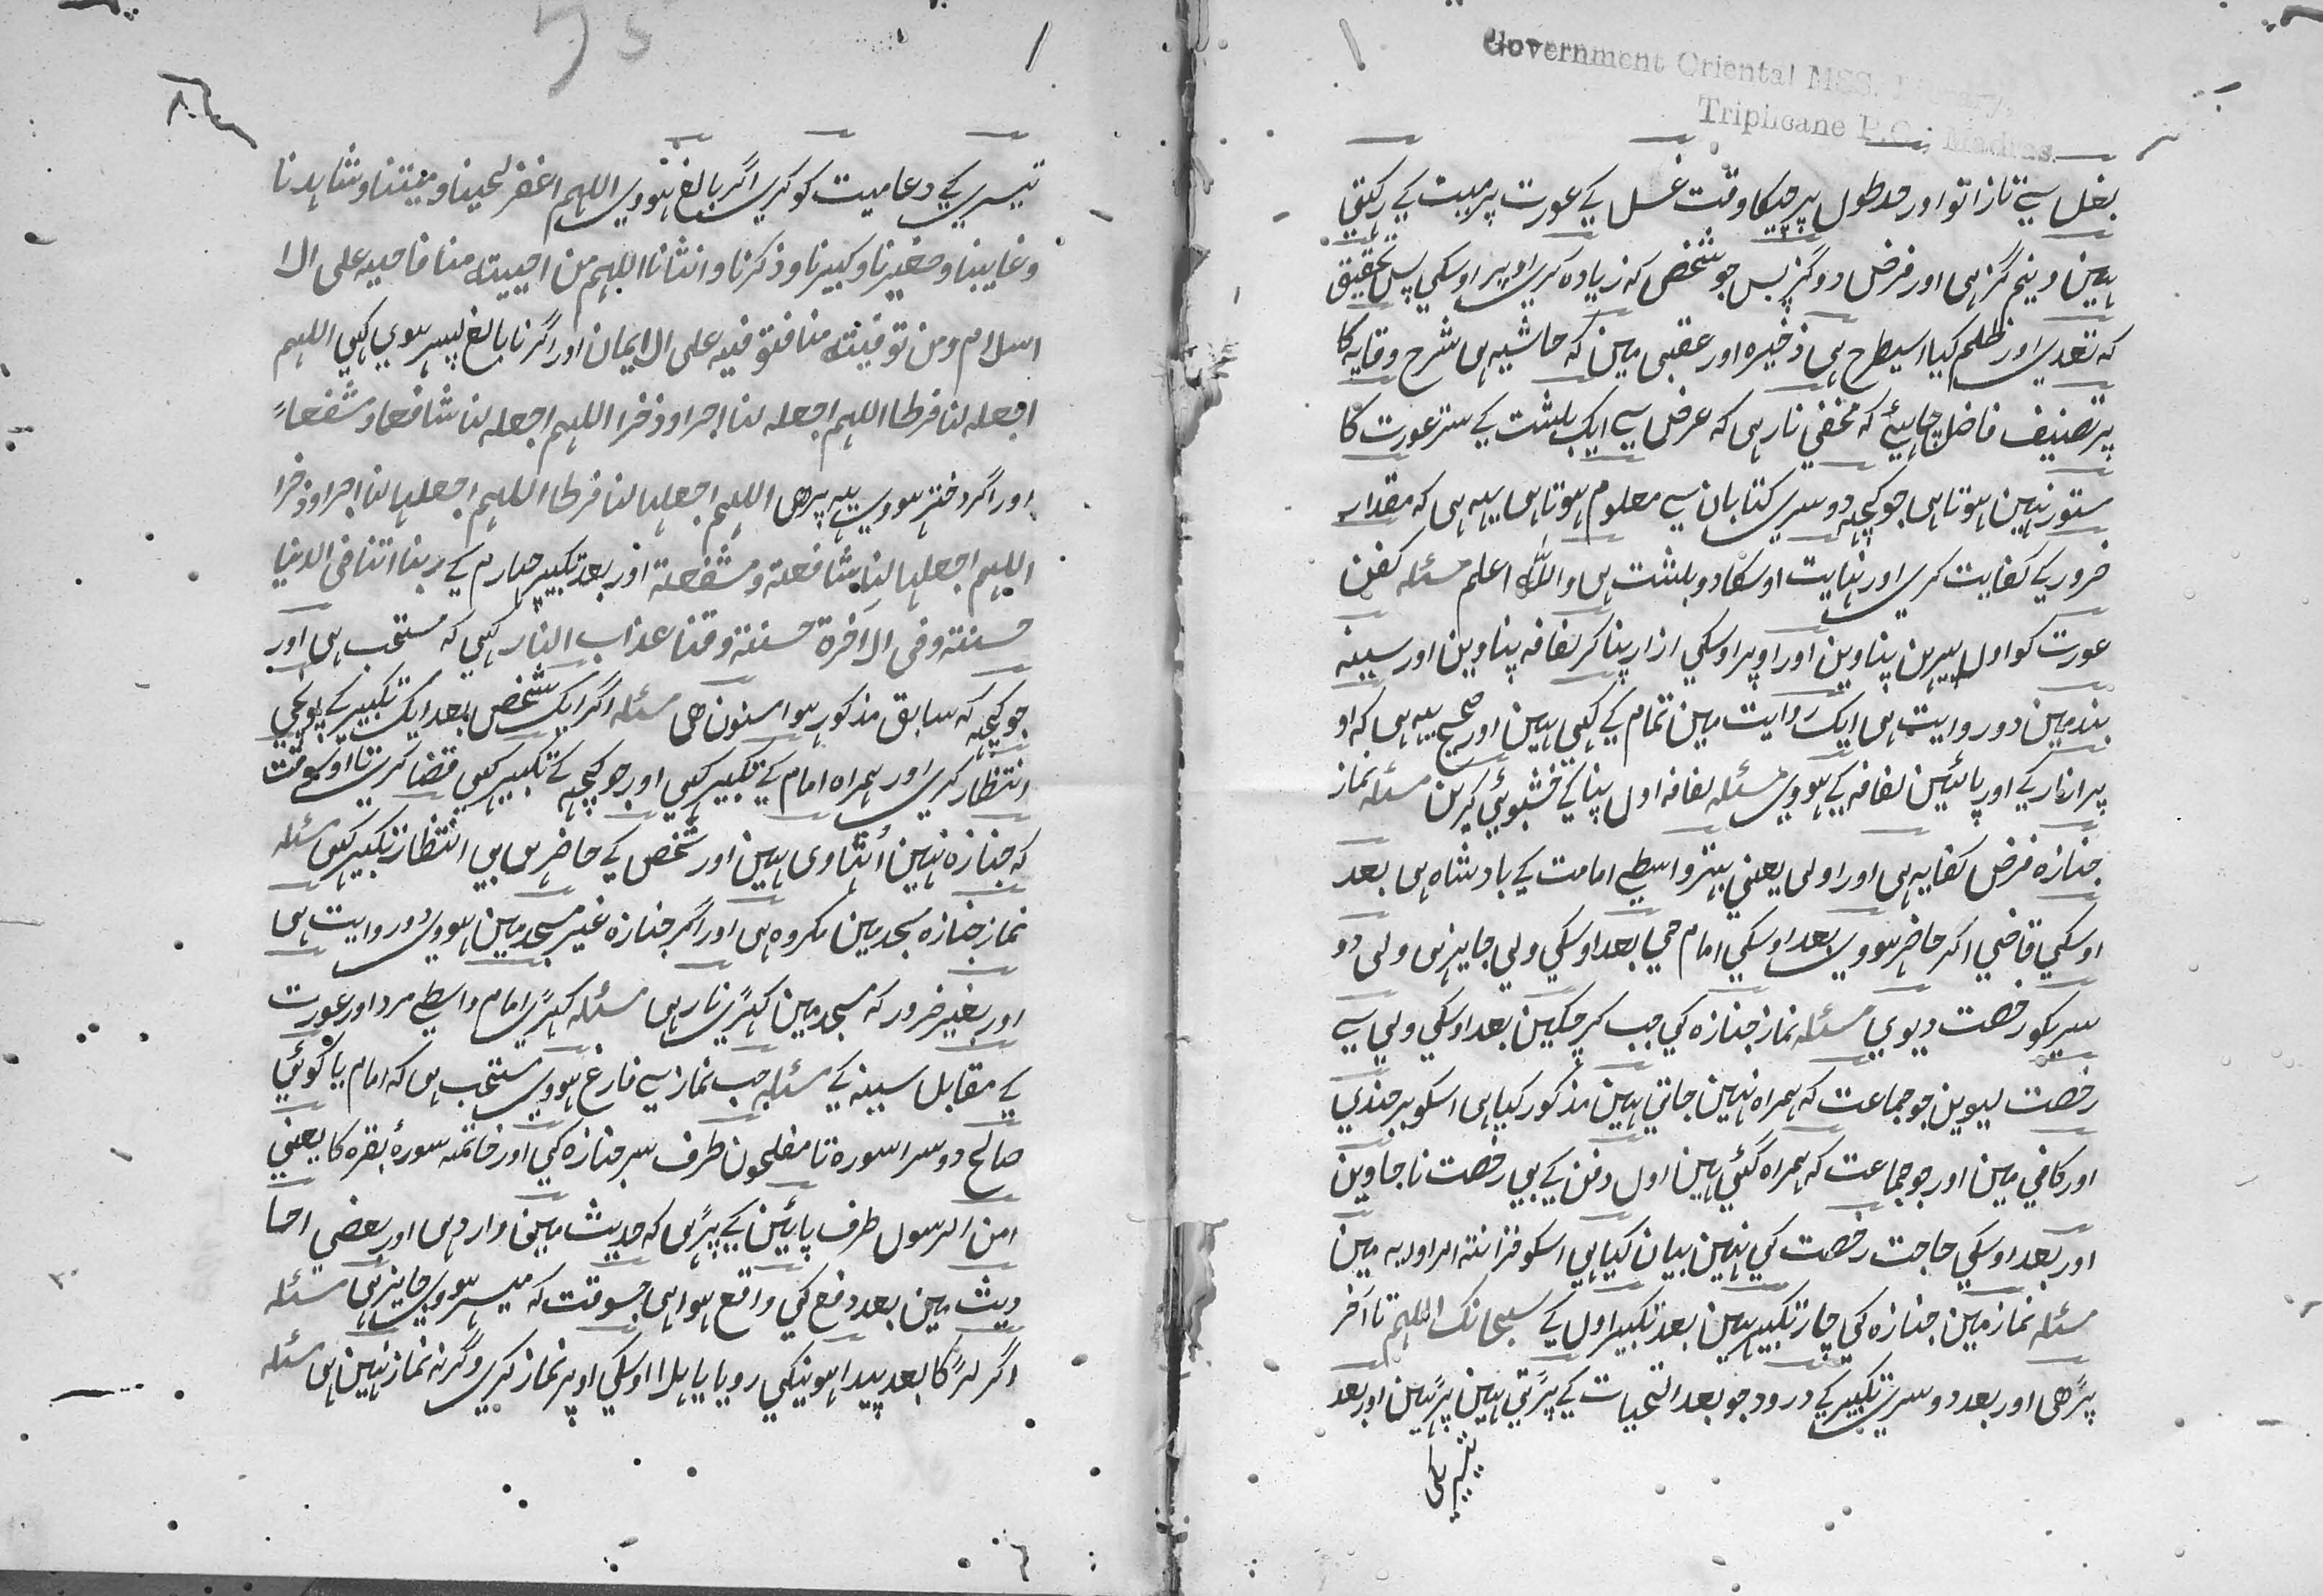 Government Oriental MSS. Library,
Triplicane P.O., Madras.
بغل سے تا زانو اور حد طول ہر جنکا وقت غسل کے عورت پر میت کے رکہتی
ہین و نیم گز ہی اور عرض دو گز پس جو شخص کہ زیادہ کری اوپر اوسکی پس تحقیق
کہ تعدی اور ظلم کیا اسیطرح ہی ذخیرہ اور عقبی مین کہ حاشیہ ہی شرح وقایہ کا
پر تصنیف فاضل چاہیئے کہ مخفی نا رہی کہ عرض سے ایک بلشت کے ستر عورت کا
ستور نہین ہوتا ہی جو کچہہ دوسری کتابان سے معلوم ہوتا ہی یہہ ہی کہ مقدار
ضرور کے کفایت کری اور نہایت اوسکا دو بلشت ہی واللہ اعلم مسئلہ کفن
عورت کو اول پیرہن پناوین اور اوپر اوسکی ازار پنا کر لفافہ پناوین اور سینہ
بند مین دو روایت ہی ایک روایت مین تمام کے کہی ہین اور صحیح یہہ ہی کہ او
پر ازار کے اور پائین لفافہ کے ہووی مسئلہ لفافہ اول پنا کے خشبوئی کرین مسئلہ نماز
جنازہ فرض کفایہ ہی اور اولی یعنی بہتر واسطے امامت کے بادشاہ ہی بعد
اوسکی قاضی اگر حاضر ہووی بعد اوسکی امام حی بعد اوسکی ولی جایز ہی ولی دو
سریکو رخصت دیوی مسئلہ نماز جنازہ کی جب کر چکین بعد اوسکی ولی سے
رخصت لیوین جو جماعت کہ ہمراہ نہین جاتی ہین مذکور کیا ہی اسکو برجندی
اور کافی مین اور جو جماعت کہ ہمراہ گئی ہین اول دفن کے بی رخصت نا جاوین
اور بعد اوسکی حاجت رخصت کی نہین بیان کیا ہی اسکو خزانتہ الراودیہ مین
مسئلہ نماز مین جنازہ کی چار تکبیر ہین بعد تکبیر اول کے سبحانک اللہم تا آخر
پڑھی اور بعد دوسری تکبیر کے درود جو بعد التحیات کے پڑتی ہین پڑہین اور بعد
تیسری
تیسری کے دعا میت کو کری اگر بالغ ہووی اللہم اغفر لحینا ومیتنا وشاہدنا
وغایبنا وصغیرنا وکبیرنا وذکرنا وانثانا اللہم من احییتہ منا فاحیہ علی الا
اسلام ومن توفیتہ منا فتوفیہ علی الایمان اور اگر نابالغ پسر ہووی کہی اللہم
اجعلہ لنا فرطا اللہم اجعلہ لنا اجرا وذخرا اللہم اجعلہ لنا شافعا ومشفعاً
اور اگر دختر ہووی یہہ پڑھی اللہم اجعلہا لنا فرطا اللہم اجعلہا لنا اجرا وذخرا
اللہم اجعلہا لنا شافعتہ ومشفعتہ اور بعد تکبیر چہارم کے ربنا اتنا فی الدنیا
حسنتہ وفی الآخرۃ حسنتہ وقنا عذاب النار کہی کہ مستحب ہی اور
جو کچہہ کہ سابق مذکور ہوا مسنون ھی مسئلہ اگر ایک شخص بعد ایک تکبیر کے پہونچی
انتظار کری اور ہمراہ امام کے تکبیر کہی اور جو کچہہ کے تکبیر کہی قضا کری تا اوسوقت
کہ جنازہ نہین اُٹھاوی ہین اور شخص کے حاضر ہی بی انتظار تکبیر کہی مسئلہ
نماز جنازہ مسجد مین مکروہ ہی اور اگر جنازہ غیر مسجد مین ہووی دو روایت ہی
اور بغیر ضرور کہ مسجد مین کہڑی نا رہی مسئلہ کہڑی امام واسطے مرد اور عورت
کے مقابل سینہ کے مسئلہ جب نماز سے فارغ ہووی مستحب ہی کہ امام یا کوئی
صالح دوسرا سورہ تا مفلحون طرف سر جنازہ کی اور خاتمہ سورۂ بقرہ کا یعنی
امن الرسول طرف پائین کے پڑہی کہ حدیث مین وارد ہی اور بعضی احا
دیث مین بعد دفع کی واقع ہوا ہی جسوقت کہ میسر ہووی جایز ہی مسئلہ
اگر لڑکا بعد پیدا ہونیکی رویا یا ہلا اوسکی اوپر نماز کری وگرنہ نماز نہین ہی مسئلہ